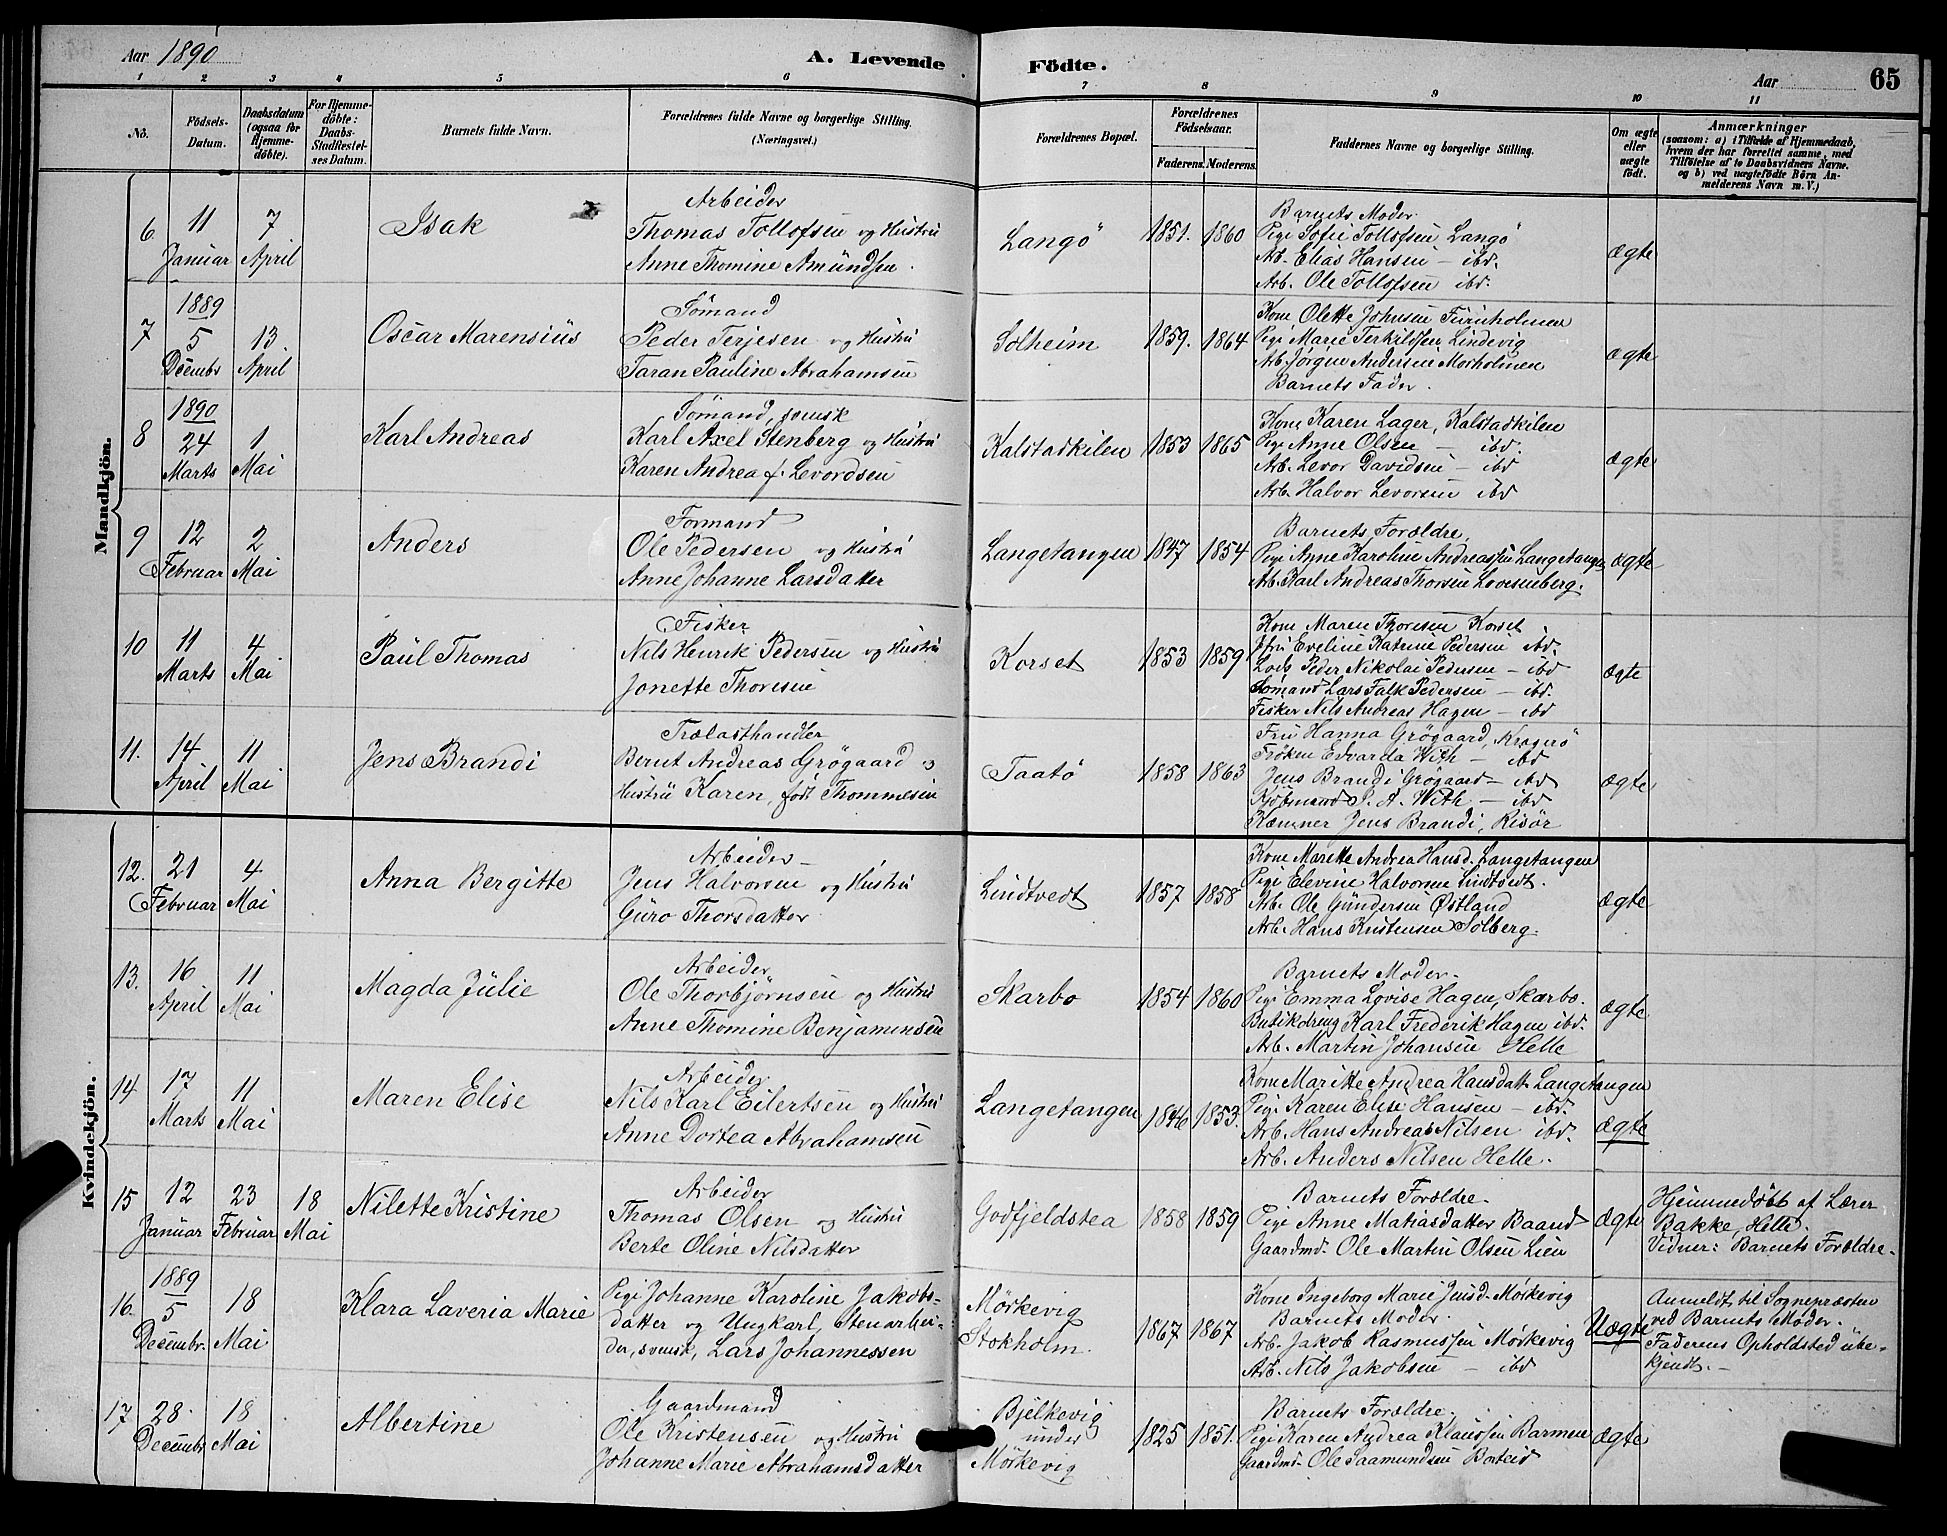 Aar 1890
A. Levende Födte.
Aar
65
1 2 3 4 5 6 7 8 9 10 11
No.
Födsels-Datum.
Daabsdatum (ogsaa for Hjemmedöbte).
For Hjemmedöbte: Daabs-Stadfæstelses Datum.
Barnets fulde Navn.
Forældrenes fulde Navne og borgerlige Stilling. (Næringsvei.)
Forældrenes Bopæl.
Forældrenes Födselsaar.
Faderens. Moderens.
Faddernes Navne og borgerlige Stilling.
Om ægte eller uægte födt.
Anmærkninger
(saasom: a) i Tilfælde af Hjemmedaab, hvem der har forrettet samme, med Tilföielse af to Daabsvidners Navne. og b) ved uægtefödte Börn Anmelderens Navn m. V.)
Mandkjön.
6. 11 Januar 7 April
Isak
Arbeider
Thomas Tollofsen og Hustru
Anne Thomine Amundsen.
Langö 1851. 1860
Barnets Moder.
Pige Sofie Tollofsen Langö
Arb. Elias Hansen – ibd.
Arb. Ole Tollofsen ibd.
ægte
7 1889 5 Decembr 13. April
Oscar Marensius
Sømand
Peder Terjesen og Hustru
Taran Pauline Abrahamsen
Solheim 1859. 1864
Kone Olette Johnsen Furuholmen
Pige Marie Terkildsen Lindevig
Arb. Jørgen Andersen Morholmen
Barnets Fader.
ægte
8 1890 24 Marts 1 Mai
Karl Andreas
Sømand, svensk
Karl Axel Stenberg og Hustru
Karen Andrea f. Levordsen
Kalstadkilen 1853 1865
Kone Karen Lager, Kalstadkilen
Pige Anne Olsen – ibd.
Arb. Levor Davidsen – ibd
Arb. Halvor Levorsen ibd
ægte
9 12 Februar 2 Mai
Anders
Formand
Ole Pedersen og Hustru
Anne Johanne Larsdatter
Langetangen 1847 1854
Barnets Forældre,
Pige Anne Karoline Andreassen Langetangen
Arb. Karl Andreas Thorsen Lovisenberg.
ægte
10 11 Marts 4 Mai
Paul Thomas
Fisker
Nils Henrik Pedersen og Hustru
Jonette Thoresen
Korset 1853 1859
Kone Maren Thoresen Korset
Jfru Eveline Katrine Pedersen ibd.
Lods Peder Nikolai Pedersen – ibd
Sømand Lars Falk Pedersen – ibd.
Fisker Nils Andreas Hagen – ibd
ægte
11. 14 April 11 Mai
Jens Brandi
Trælasthandler
Bernt Andreas Grögaard og
Hustru Karen, født Thommesen
Taatö 1858 1863
Fru Hanna Grögaard, Kragerö
Frøken Edvarda With – ibd
Jens Brandi Grögaard – ibd
Kjöbmand P. A. With – ibd
Kæmner Jens Brandi, Risör
ægte
Kvindekjön.
12. 21 Februar 4 Mai
Anna Bergitte
Arbeider
Jens Halvorsen og Hustru
Guro Thorsdatter
Lindtvedt 1857 1858
Kone Marette Andrea Hansd. Langetangen
Pige Elevine Halvorsen Lindtvedt.
Arb. Ole Gundersen Østland
Arb. Hans Kristensen Solberg.
ægte
13. 16 April 11 Mai
Magda Julie
Arbeider
Ole Thorbjørnsen og Hustru
Anne Thomine Benjaminsen
Skarbo 1854 1860
Barnets Moder.
Pige Emma Lovise Hagen, Skarbo.
Butikdreng Karl Frederik Hagen ibd.
Arb. Martin Johansen Helle
ægte
14 17 Marts 11 Mai
Maren Elise
Arbeider
Nils Karl Eilertsen og Hustru
Anne Dortea Abrahamsen
Langetangen 1846 1853.
Kone Maritte Andrea Hansdatt. Langetangen
Pige Karen Elise Hansen – ibd.
Arb. Hans Andreas Nilsen ibd.
Arb. Anders Nilsen Helle.
ægte
15 12 Januar 23 Februar 18 Mai
Nilette Kristine
Arbeider
Thomas Olsen og Hustru
Berte Oline Nilsdatter
Godfjeldstea 1858 1859
Barnets Forældre.
Pige Anne Matiasdatter Baand
Gaardmd. Ole Martin Olsen Lien
ægte
Hjemmedøbt af Lærer
Bakke, Helle.
Vidner: Barnets Forældre.
16. 1889 5 Decembr. 18 Mai
Klara Laveria Marie
Pige Johanne Karoline Jakobs-
datter og Ungkarl, Stenarbei-
der, svensk, Lars Johannessen
Mörkevig
Stokholm. 1867 1867
Kone Ingeborg Marie Jensd. Mörkevig
Barnets Moder.
Arb. Jakob Rasmussen Mörkevig
Arb. Nils Jakobsen – ibd
Uægte
Anmeldt til Sognepræsten
ved Barnets Moder.
Faderens Opholdsted ube-
kjendt. –
17 28. Decembr. 18 Mai
Albertine
Gaardmand
Ole Kristensen og Hustru
Johanne Marie Abrahamsdatter
Bjelkevig
under
Mörkevig 1825 1851.
Barnets Forældre.
Pige Karen Andrea Klaussen Barmen
Gaardmd. Ole Saamundsen Borteid
ægte